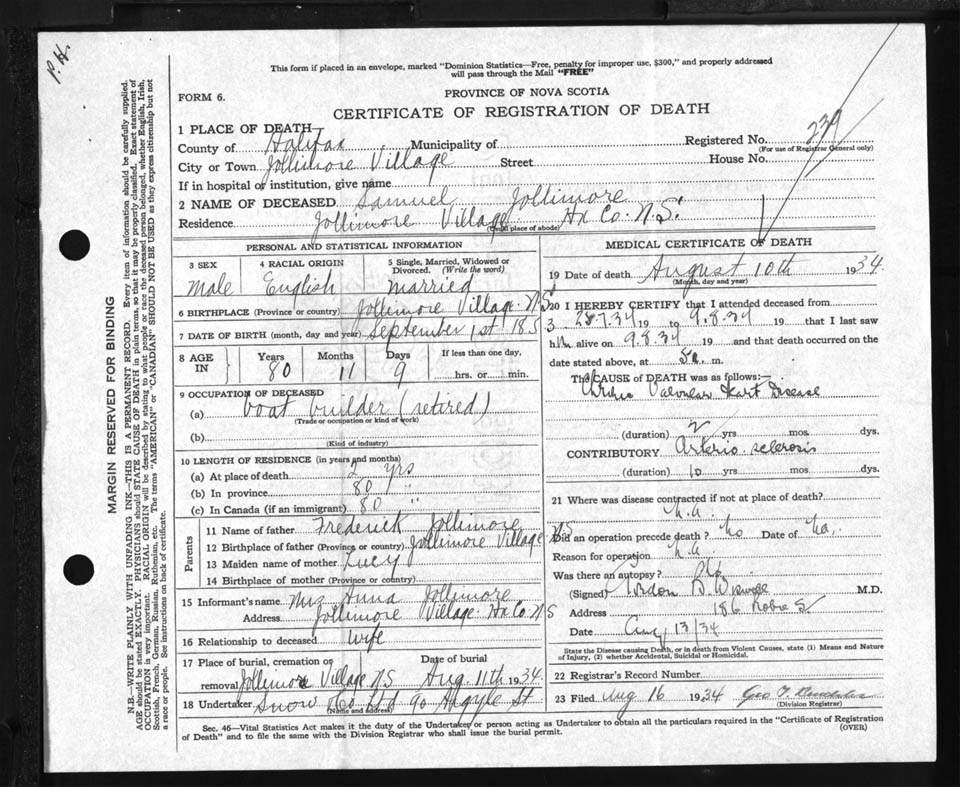 P.H.
This form if placed in an envelope, marked "Dominion Statistics—Free, penalty for improper use, $300," and properly addressed
will pass through the Mail "FREE"
PROVINCE OF NOVA SCOTIA
FORM 6.
CERTIFICATE OF REGISTRATION OF DEATH
239
1 PLACE OF DEATH
County of Halifax Municipality of Registered No.
(For use of Registrar General only)
City or Town Jollimore Village Street House No.
If in hospital or institution, give name
2 NAME OF DECEASED Samuel Jollimore
Residence Jollimore Village Hx Co. N.S.
(Usual place of abode)
PERSONAL AND STATISTICAL INFORMATION
3 SEX 4 RACIAL ORIGIN 5 Single, Married, Widowed or Divorced. (Write the word)
male English married
6 BIRTHPLACE (Province or country) Jollimore Village N.S
7 DATE OF BIRTH (month, day and year) September 1st 1853
8 AGE IN Years Months Days If less than one day,
80 11 9 hrs. or min.
9 OCCUPATION OF DECEASED
(a) boat builder (retired)
(Trade or occupation or kind of work)
(b)
(Kind of industry)
10 LENGTH OF RESIDENCE (in years and months)
(a) At place of death 2 yrs
(b) In province 80 "
(c) In Canada (if an immigrant) 80 "
Parents
11 Name of father Frederick Jollimore
12 Birthplace of father (Province or country) Jollimore Village NS
13 Maiden name of mother Lucy
14 Birthplace of mother (Province or country)
15 Informant's name Mrs Anna Jollimore
Address Jollimore Village Hx Co NS
16 Relationship to deceased wife
17 Place of burial, cremation or Date of burial
removal Jollimore Village NS Aug. 11th 1934
18 Undertaker Snow Co Ltd 90 Argyle St
(Name and address)
MEDICAL CERTIFICATE OF DEATH
19 Date of death August 10th 1934
(Month, day and year)
20 I HEREBY CERTIFY that I attended deceased from
28.7.34 19 to 9.8.34 19 that I last saw
him alive on 9.8.34 19 and that death occurred on the
date stated above, at 5a. m.
The CAUSE OF DEATH was as follows:—
Chronic Valvular Heart Disease
(duration) 2 yrs. mos. dys.
CONTRIBUTORY Arterio sclerosis
(duration) 10 yrs. mos. dys.
21 Where was disease contracted if not at place of death?
N.A.
Did an operation precede death? No Date of Na.
Reason for operation N.A
Was there an autopsy? No
(Signed) Gordon B. Wiswell M.D.
Address 186 Robie St
Date Aug 13/34
State the Disease causing Death, or in death from Violent Causes, state (1) Means and Nature
of Injury, (2) whether Accidental, Suicidal or Homicidal.
22 Registrar's Record Number
23 Filed Aug 16 1934 Geo
(Division Registrar)
Sec. 46—Vital Statistics Act makes it the duty of the Undertaker or person acting as Undertaker to obtain all the particulars required in the "Certificate of Registration
of Death" and to file the same with the Division Registrar who shall issue the burial permit.
(OVER)
MARGIN RESERVED FOR BINDING
N.B.—WRITE PLAINLY WITH UNFADING INK—THIS IS A PERMANENT RECORD. Every item of information should be carefully supplied.
AGE should be stated EXACTLY. PHYSICIANS should STATE CAUSE OF DEATH in plain terms, so that it may be properly classified. Exact statement of
OCCUPATION is very important. RACIAL ORIGIN will be described by stating to what people or race the deceased person belonged, whether English, Irish,
Scottish, French, German, Russian, Ruthenian, etc. The terms "AMERICAN" or "CANADIAN" SHOULD NOT BE USED as they express citizenship but not
a race or people. See instructions on back of certificate.